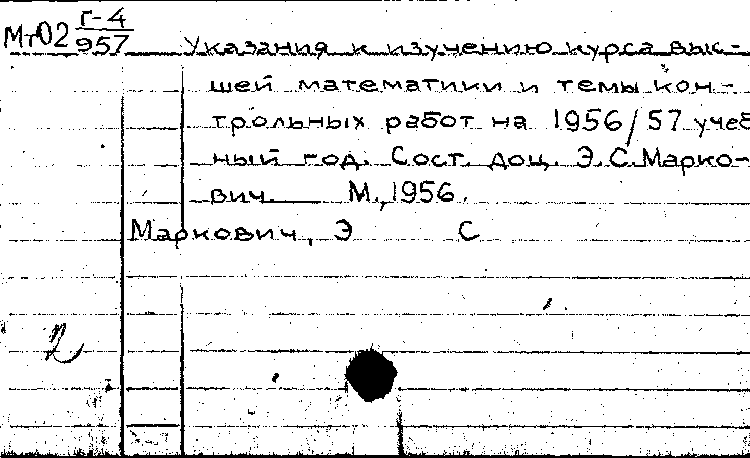 Мт02 Г-4/957 Указания к изучению курса выс-
шей математики и темы кон-
трольных работ на 1956/57 учеб
ный год. Сост. доц. Э.С.Марко-
вич. М.,1956.
Маркович, Э С
2